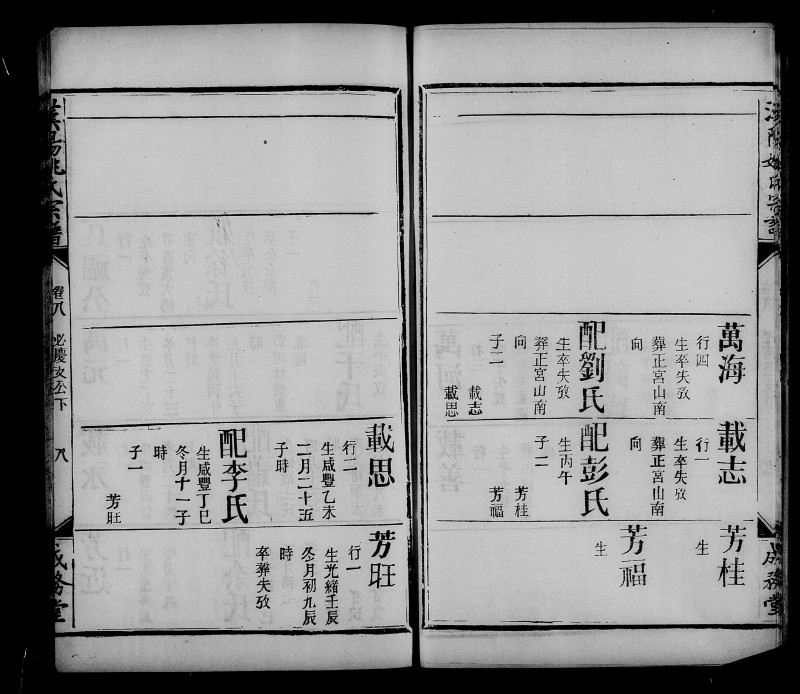 萬海
行四
生卒失攷
葬正宮山南
向
配劉氏
生卒失攷
葬正宮山南
向
子二
載志
載思
載志
行一
生卒失攷
葬正宮山南
向
配彭氏
生丙午
子二
芳桂
芳福
芳桂
生
芳福
生
成務堂
載思
行二
生咸豐乙未
二月二十五
子時
配李氏
生咸豐丁巳
冬月十一子
時
子一
芳旺
芳旺
行一
生光緒壬辰
冬月初九辰
時
卒葬失攷
氏宗譜
卷八
必慶公下
八
成務堂